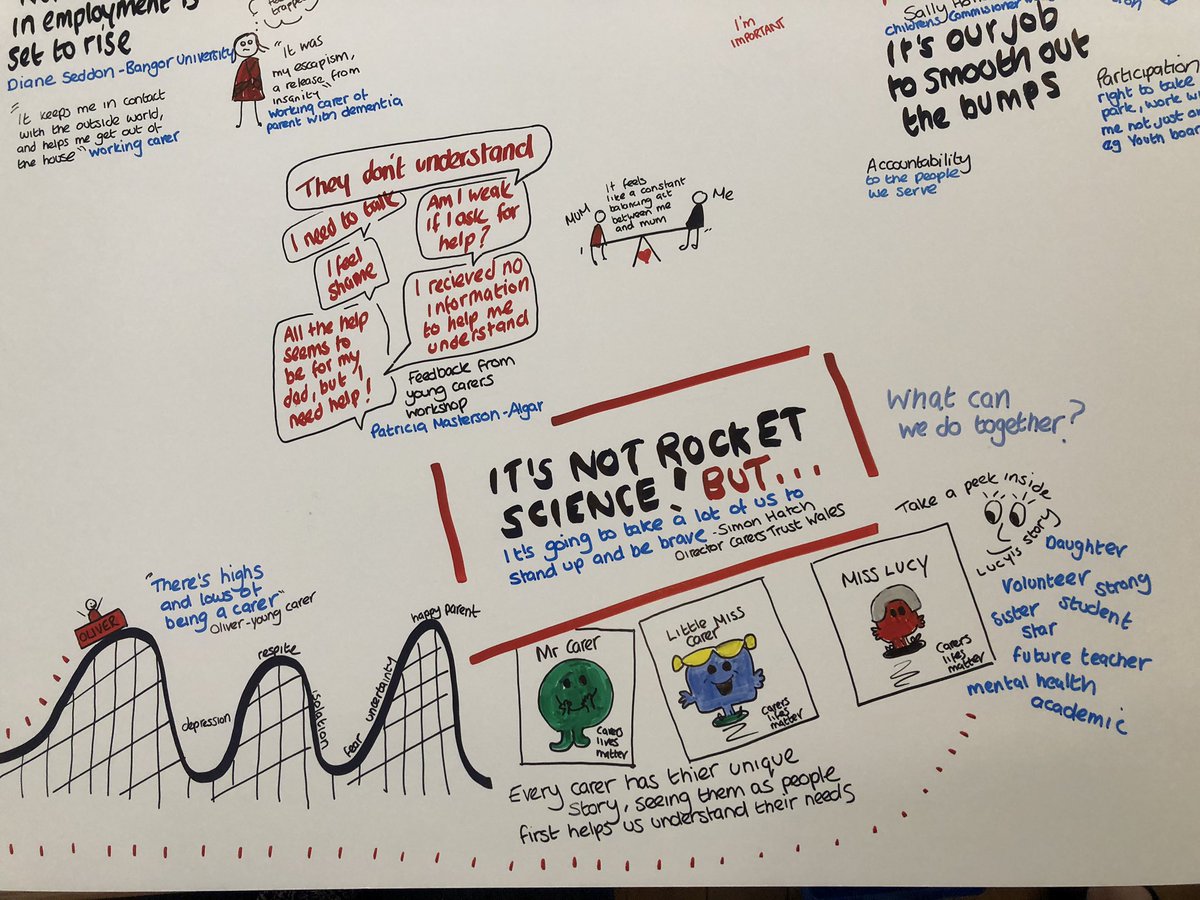 in employment is
set to rise
Diane Seddon - Bangor University
"It keeps me in contact
with the outside world,
and helps me get out of
the house" working carer
trapped
"It was
my escapism,
a release from
insanity"
working carer of
parent with dementia
I'm
IMPORTANT
Sally
childrens commisioner
IT'S OUR JOB
to smooth out
the bumps
Accountability
to the people
we serve
Participation
right to take
park, work wi
me not just
eg Youth boar
They don't understand
I need to talk
Am I weak
if I ask for
help?
I feel
shame
I recieved no
information
to help me
understand
All the help
seems to
be for my
dad, but I
need help!
Feedback from
young carers
workshop
Patricia Masterson-Algar
MUM
It feels
like a constant
balancing act
between me
and mum
Me
IT'S NOT ROCKET
SCIENCE! BUT...
It's going to take a lot of us to
stand up and be brave - Simon Hatch
Director Carers Trust Wales
What can
we do together?
Take a peek inside
Lucy's story
Daughter
Volunteer strong
Sister student
star
future teacher
mental health
academic
OLIVER
"There's highs
and lows of
being a carer"
Oliver - young carer
depression
respite
isolation
fear
uncertainty
happy parent
Mr Carer
Carers
lives
matter
Little Miss
carer
Carers
lifes
matter
MISS LUCY
Carers
lifes
matter
Every carer has thier unique
story, seeing them as people
first helps us understand their needs